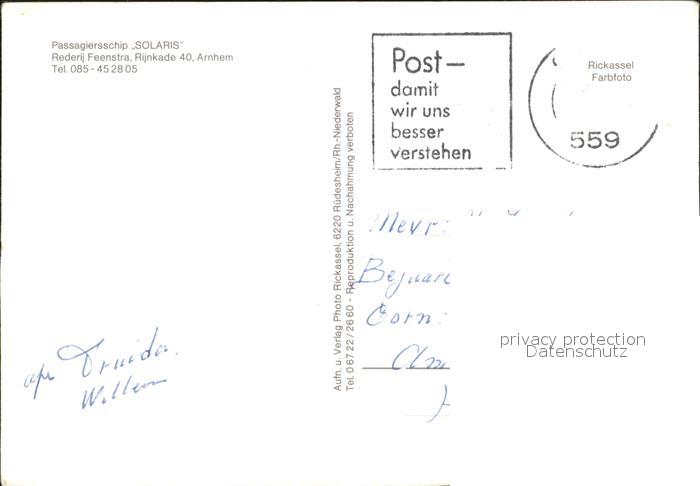 Passagiersschip „SOLARIS"
Rederij Feenstra, Rijnkade 40, Arnhem
Tel. 085 - 45 28 05
Post –
damit
wir uns
besser
verstehen
Rickassel
Farbfoto
559
Aufn. u. Verlag Photo Rickassel, 6220 Rüdesheim/Rh.-Niederwald
Tel. 0 67 22 / 26 60 - Reproduktion u. Nachahmung verboten
Mevr:
Corn:
privacy protection
Datenschutz
Willem